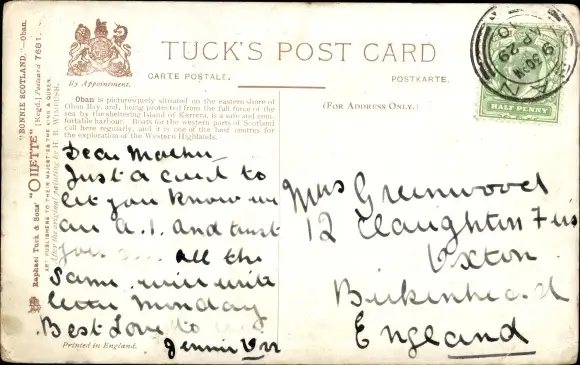 TUCK'S POST CARD
CARTE POSTALE.
POSTKARTE.
By Appointment.
(FOR ADDRESS ONLY.)
HALF PENNY
"BONNIE SCOTLAND,"—Oban.
[Regd.] Postcard 7681.
Raphael Tuck & Sons' "OILETTE"
ART PUBLISHERS TO THEIR MAJESTIES THE KING & QUEEN.
After the original painting by H. B. WIMBUSH.
Oban is picturesquely situated on the eastern shore of
Oban Bay, and, being protected from the full force of the
sea by the sheltering Island of Kerrera, is a safe and com-
fortable harbour. Boats for the western parts of Scotland
call here regularly, and it is one of the best centres for
the exploration of the Western Highlands.
Dear Mother
Just a card to
let you know we
are A.1. and trust
you all the
same. will write
letter Monday
Best Love to
Jennie
Printed in England.
Mrs Greenwood
12 Claughton
Oxton
Birkenhead
England